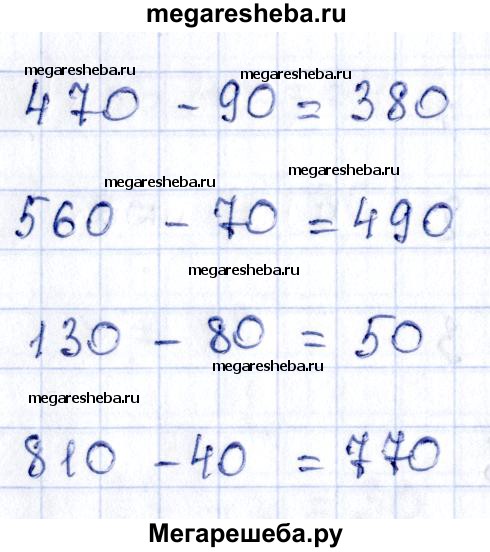 megaresheba.ru
megaresheba.ru
megaresheba.ru
470 - 90 = 380
megaresheba.ru
megaresheba.ru
560 - 70 = 490
megaresheba.ru
130 - 80 = 50
megaresheba.ru
megaresheba.ru
810 - 40 = 770
Мегарешеба.ру